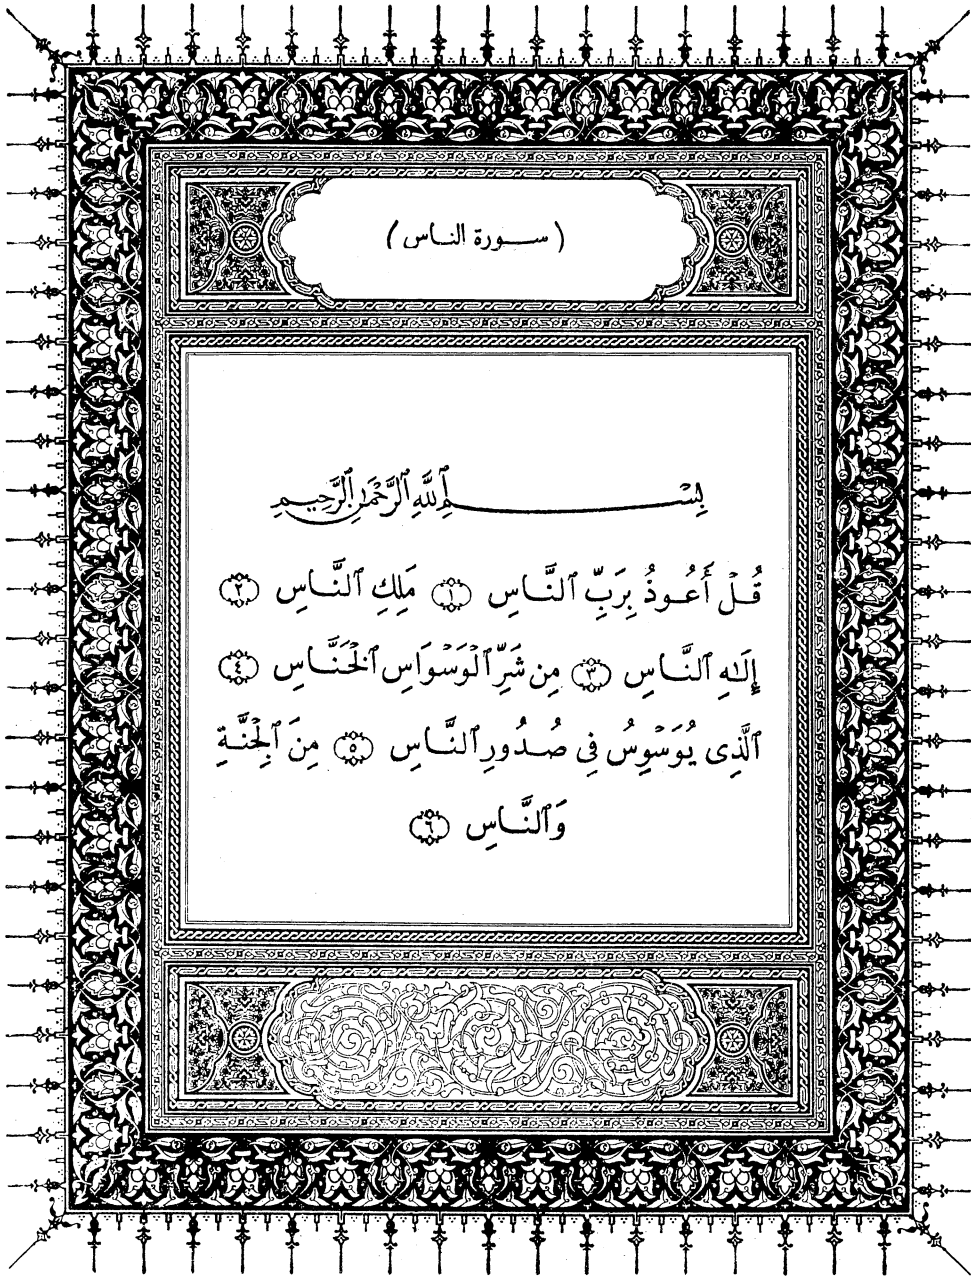 ( ســورة النـاس )
بِسْــــــمِ ٱللَّهِ ٱلرَّحْمَٰنِ ٱلرَّحِيمِ
قُلْ أَعُوذُ بِرَبِّ ٱلنَّاسِ ١ مَلِكِ ٱلنَّاسِ ٢
إِلَٰهِ ٱلنَّاسِ ٣ مِن شَرِّ ٱلْوَسْوَاسِ ٱلْخَنَّاسِ ٤
ٱلَّذِى يُوَسْوِسُ فِى صُدُورِ ٱلنَّاسِ ٥ مِنَ ٱلْجِنَّةِ
وَٱلنَّاسِ ٦